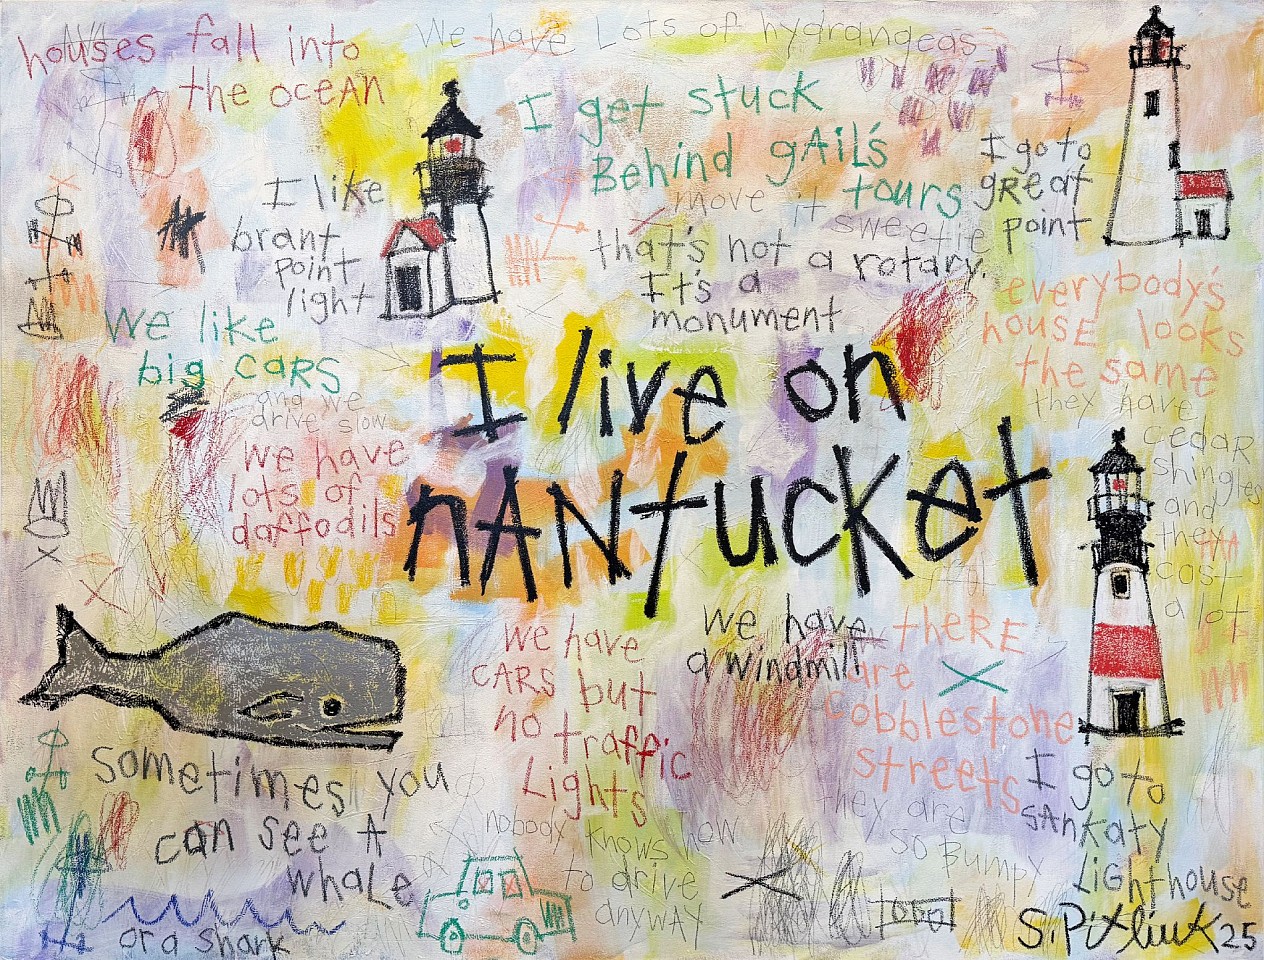 houses fall into
the oceAn
We have Lots of hydrangeas
I get stuck
Behind gAiL's
tours
move it
sweetie
I go to
great
point
I like
brant
point
light
that's not a rotary.
It's a
monument
everybody's
housE looks
the same
they have
cedaR
shingles
and
they
cost
a lot
We like
big CARS
and we
drive slow
I live on
nANtucket
We have
lots of
daffodils
We have
CARS but
no traffic
Lights
nobody knows how
to drive
anyWAY
We have
a windmill
theRE
are
cobblestone
streets
they are
so Bumpy
I go to
SANkaty
Lighthouse
sometimes you
cAn see A
whaLe
or a shark
S. Pitliuk 25